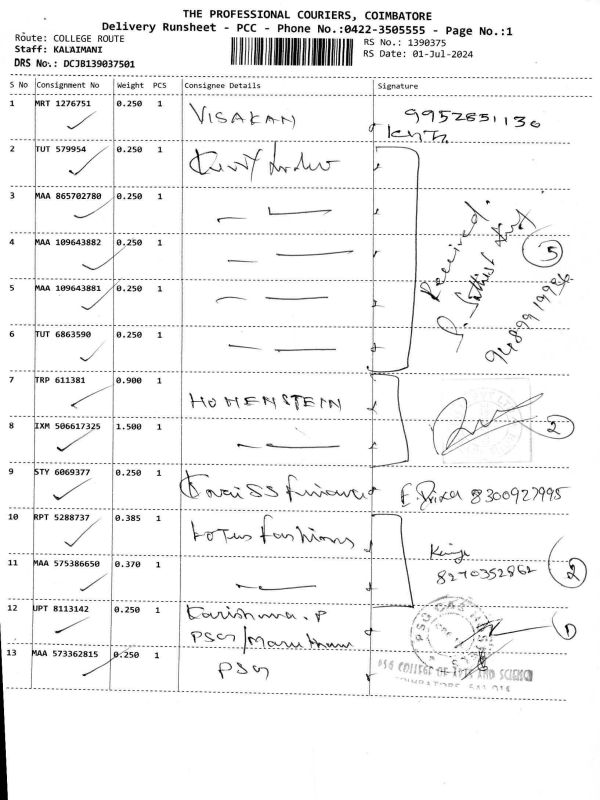 THE PROFESSIONAL COURIERS, COIMBATORE
Delivery Runsheet - PCC - Phone No.:0422-3505555 - Page No.:1
Route: COLLEGE ROUTE
RS No.: 1390375
Staff: KALAIMANI
RS Date: 01-Jul-2024
DRS No.: DCJB139037501
S No Consignment No Weight PCS Consignee Details Signature
1 MRT 1276751 0.250 1 VISAKAN 9952851130
2 TUT 579954 0.250 1
3 MAA 865702780 0.250 1
Received.
4 MAA 109643882 0.250 1 3
5 MAA 109643881 0.250 1
6 TUT 6863590 0.250 1
7 TRP 611381 0.900 1 HOHENSTEIN
8 IXM 506617325 1.500 1 2
9 STY 6069377 0.250 1 Finance 8300927995
10 RPT 5288737 0.385 1 Lotus fashions
11 MAA 575386650 0.370 1 8270352862 2
12 UPT 8113142 0.250 1 Karishma.P 1
PSG/Marutham
13 MAA 573362815 0.250 1 PSG
PSG COLLEGE OF ARTS AND SCIENCE